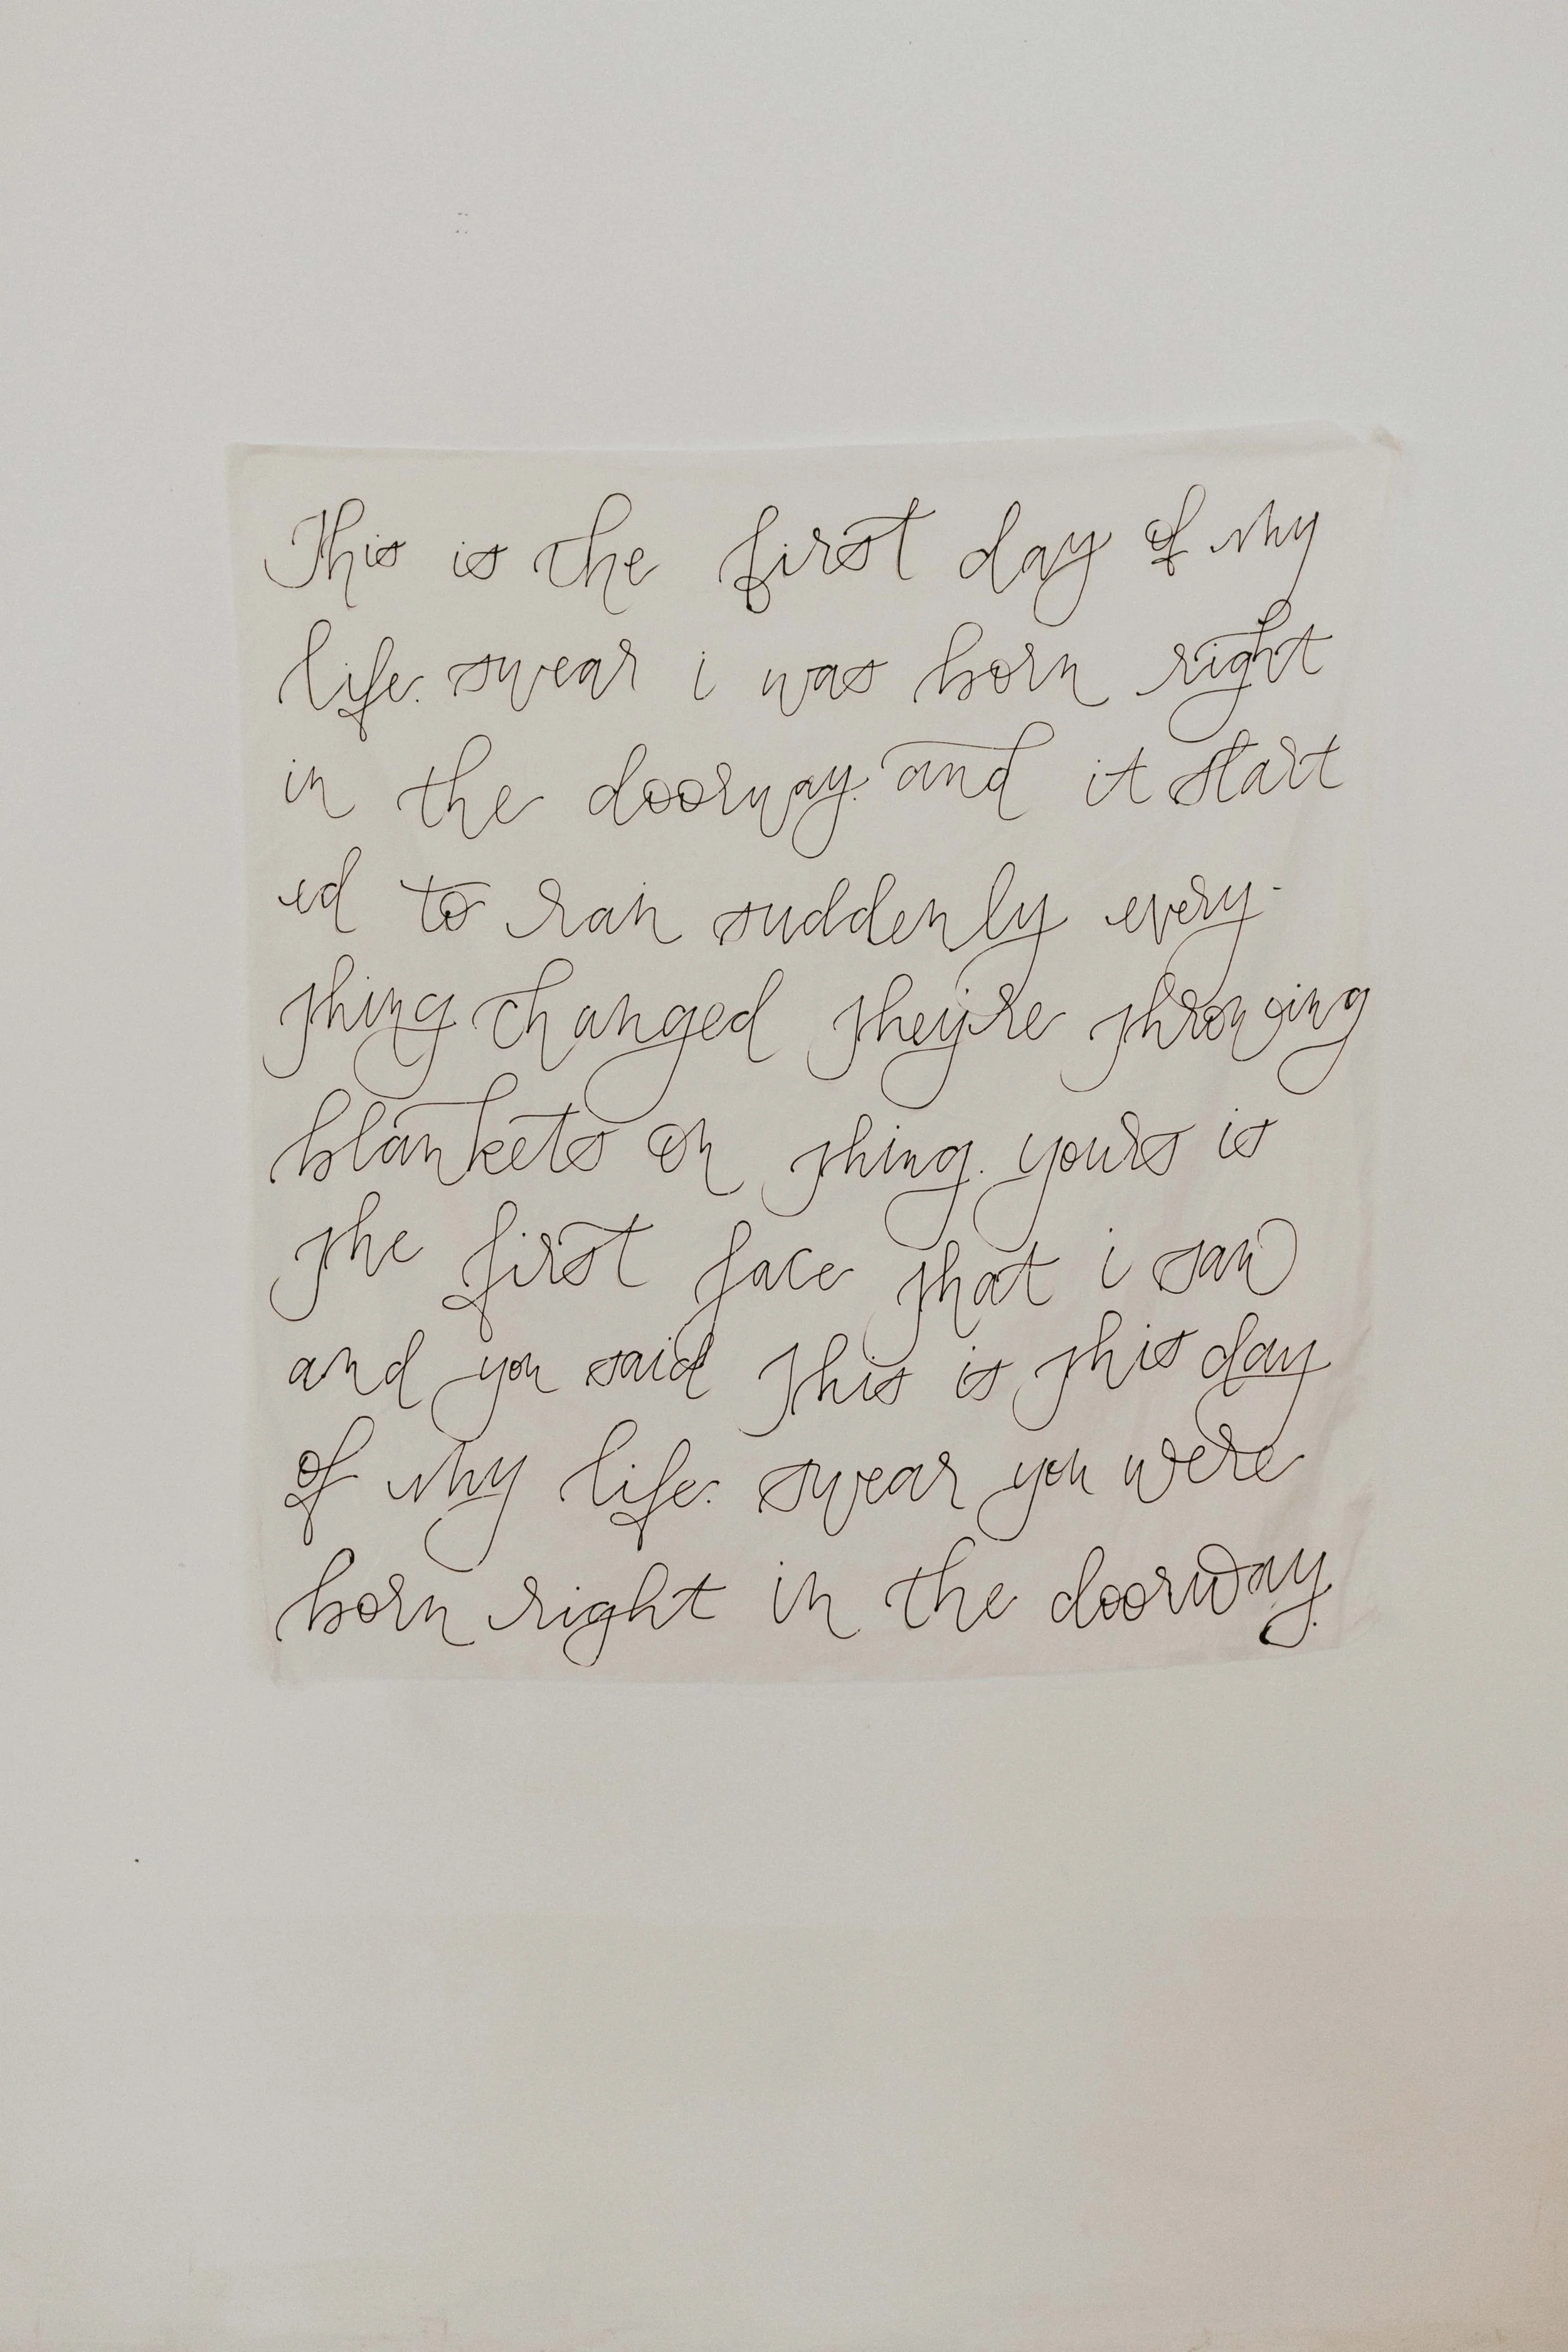 This is the first day of my
life. swear i was born right
in the doorway. and it start
ed to rain suddenly every-
thing changed they're throwing
blankets on thing. yours is
the first face that i saw
and you said this is this day
of my life. swear you were
born right in the doorway.